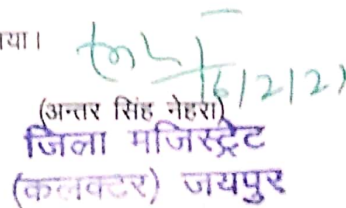 या।
16/2/21
(अन्तर सिंह नेहरा)
जिला मजिस्ट्रेट
(कलक्टर) जयपुर